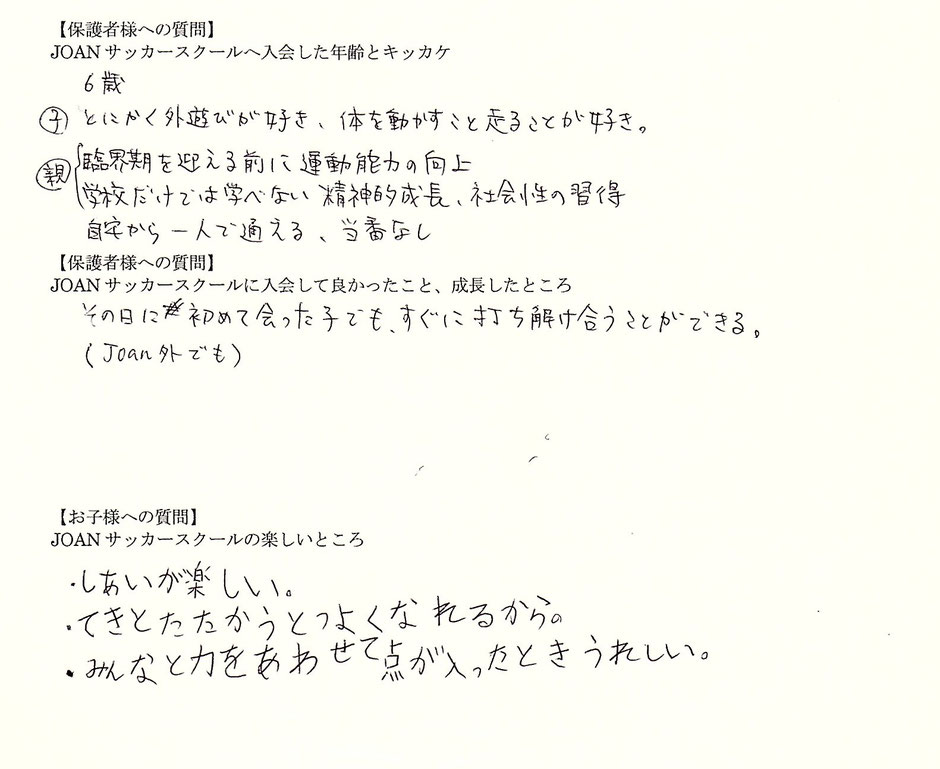 【保護者様への質問】
JOANサッカースクールへ入会した年齢とキッカケ
6歳
子 とにかく外遊びが好き、体を動かすこと走ることが好き。
親 臨界期を迎える前に運動能力の向上
学校だけでは学べない精神的成長、社会性の習得
自宅から一人で通える、当番なし
【保護者様への質問】
JOANサッカースクールに入会して良かったこと、成長したところ
その日に初めて会った子でも、すぐに打ち解け合うことができる。
(Joan外でも)
【お子様への質問】
JOANサッカースクールの楽しいところ
・しあいが楽しい。
・てきとたたかうとつよくなれるから。
・みんなと力をあわせて点が入ったときうれしい。